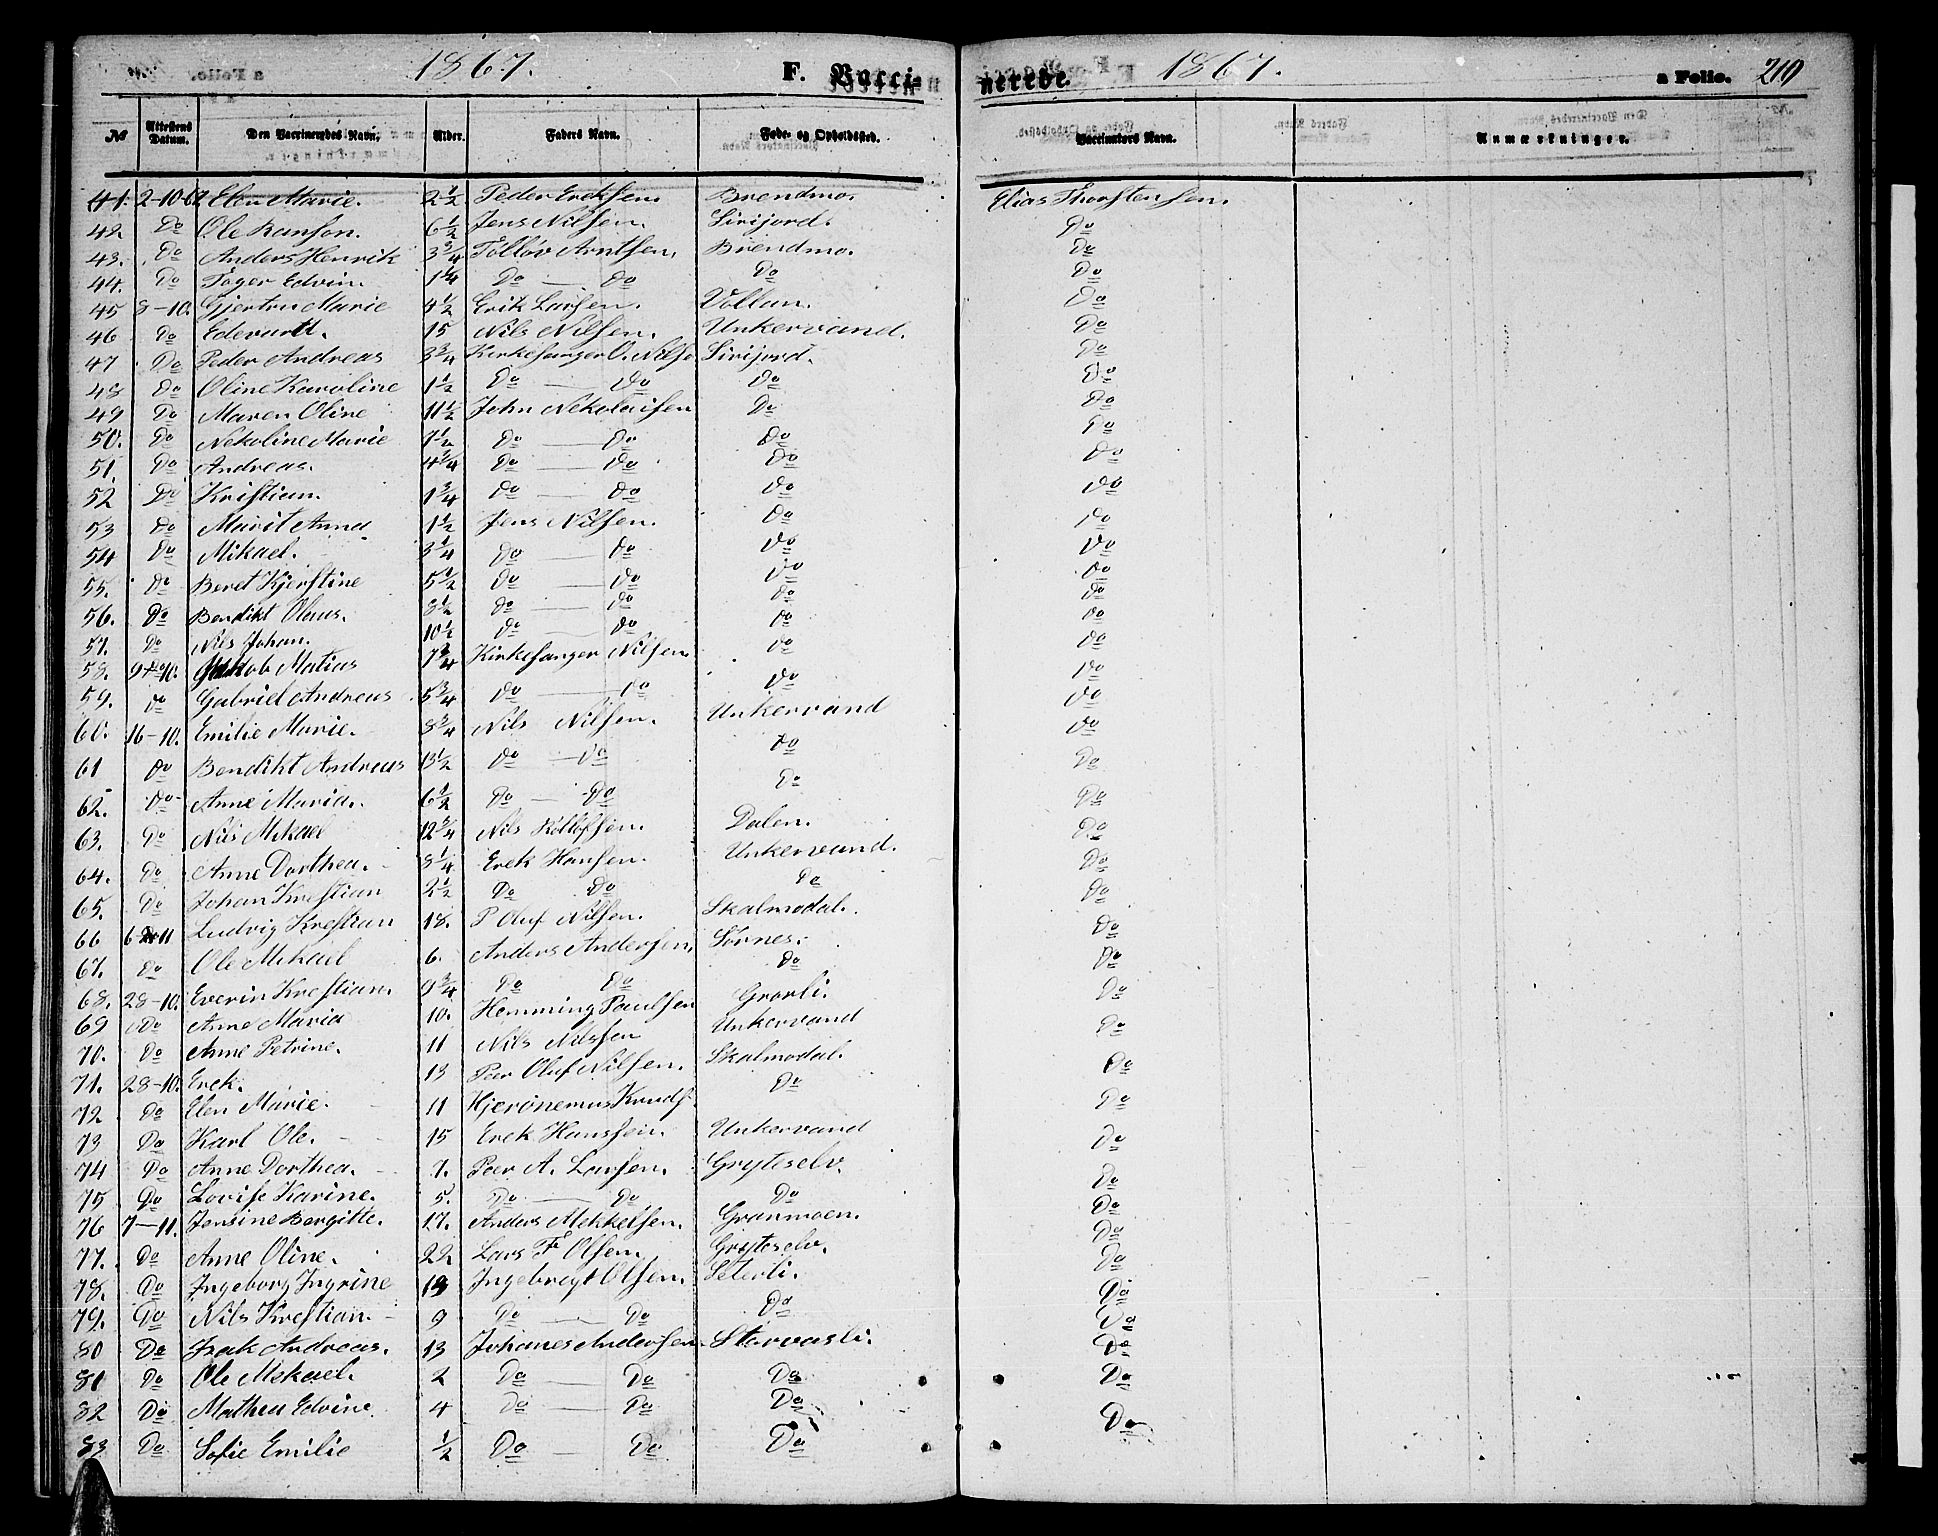 1867. F. Vacci- nerede. 1867. a Folio. 210
No Attestens Datum. Den Vaccineredes Navn. Alder. Faders Navn. Føde- og Opholdssted. Vaccinators Navn. Anmærkninger.
41. 2-10-62 Elen Marie. 2 1/2 Peder Ereksen. Brendmo. Elias Thorstensen.
42 Do Ole Ranson. 6 1/2 Jens Nilsen. Sirijord. Do
43. Do Anders Henrik 3 3/4 Tolløv Arntsen. Brendmo. Do
44. Do Toger Edvin. 1 1/4 Do Do Do Do
45 8-10. Gjertru Marie 4 1/2 Erik Larsen. Vollan. Do
46 Do Edevart. 15 Nils Nilsen. Unkervand. Do
47 Do Peder Andreas 3 3/4 Kirkesanger O. Nilse Sirijord. Do
48 Do Oline Karoline 1 1/2 Do Do Do Do
49 Do Maren Oline 11 1/2 John Nekolaisen Do Do
50. Do Nekoline Marie 7 1/2 Do Do Do Do
51. Do Andreas. 4 3/4 Do Do Do Do
52 Do Kristian. 1 3/4 Do Do Do Do
53 Do Marit Anna 1 1/2 Jens Nilsen. Do Do
54 Do Mikael. 3 1/4 Do Do Do Do
55. Do Beret Kjerstine 5 1/2 Do Do Do Do
56. Do Bendikt Olaus. 8 1/2 Do Do Do Do
57. Do Nils Johan. 10 1/2 Do Do Do Do
58. 9-10. Jakob Matias 7 3/4 Kirkesanger Nilsen Do Do
59. Do Gabriel Andreas 5 3/4 Do Do Do Do
60. 16-10. Emilie Marie. 8 3/4 Nils Nilsen. Unkervand Do
61 Do Bendikt Andreas 13 1/2 Do Do Do Do
62. Do Anne Maria. 6 1/2 Do Do Do Do
63. Do Nils Mikael 12 3/4 Nils Dalen. Do
64. Do Anne Dorthea. 8 1/4 Erek Hansen. Unkervand. Do
65. Do Johan Krestian 2 1/2 Do Do Do Do
66 6-11 Ludvig Krestian 18. P Oluf Nilsen. Skalmodal. Do
67. Do Ole Mikael 6. Anders Andersen. Sørnes. Do
68. 28-10. Everin Krestian. 9 3/4 Do Do Do Do
69 Do Anne Maria 10. Hemming Paulsen Grorli. Do
70. Do Anne Petrine. 11 Nils Nilssen Unkervand Do
71. 28-10. Erek. 13 Peer Oluf Nilsen. Skalmodal. Do
72 Do Elen Marie. 11 Hjerønemus Knuds. Do Do
73 Do Karl Ole. 15 Erek Hanssen. Unkervand Do
74 Do Anne Dorthea. 7. Peer A. Larsen. Gryteselv. Do
75 Do Lovise Karine. 5. Do Do Do Do
76 7-11. Jensine Bergitte. 17. Anders Mekkelsen. Granmoen. Do
77. Do Anne Oline. 22 Lars F Olsen. Gryteselv. Do
78. Do Ingeborg Ingrine 13 Ingebregt Olsen. Seterli. Do
79. Do Nils Krestian. 9 Do Do Do Do
80 Do Isak Andreas. 13 Johanes Andersen Storvasli. Do
81 Do Ole Mekael. 2 Do Do Do Do
82 Do Mathea Edvine. 4 Do Do Do Do
83 Do Sofie Emilie 1/2 Do Do Do